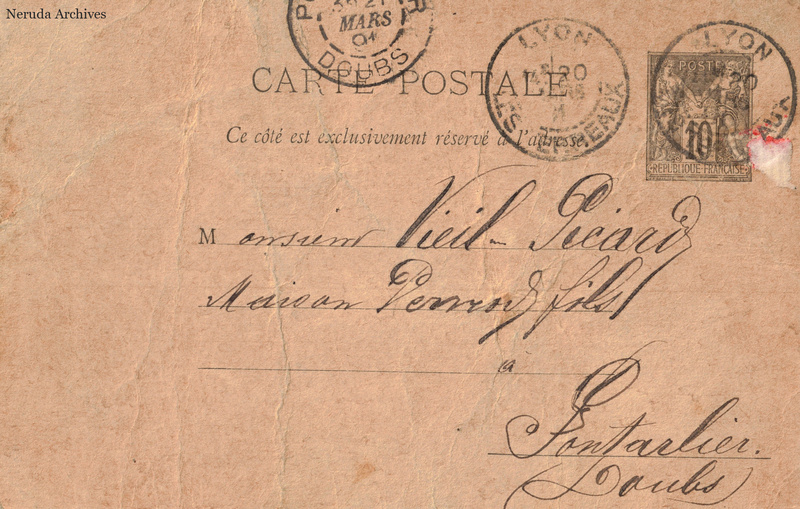 Neruda Archives
21
MARS
91
DOUBS
LYON
20
LYON
20
CARTE POSTALE
POSTES
10
REPUBLIQUE FRANÇAISE
Ce côté est exclusivement réservé à l'adresse.
Monsieur Vieil-Picard
Maison Pernod fils
à
Pontarlier.
Doubs